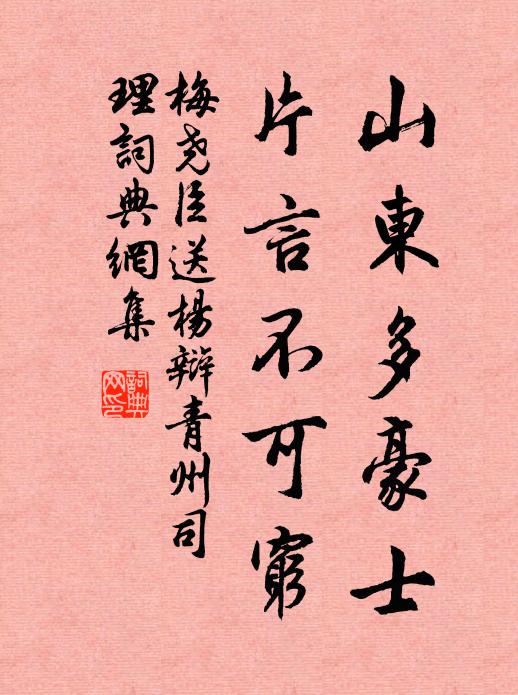 山東多豪士
片言不可窮
梅堯臣送楊辯青州司
理詞典網集
詞典
网印